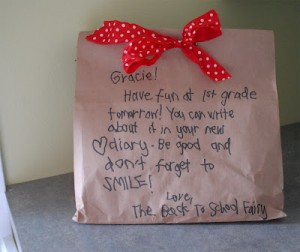 Gracie!
Have fun at 1st grade
tomorrow! You can write
about it in your new
♡diary. Be good and
dont forget to
SMILE!
Love,
The Back To School Fairy